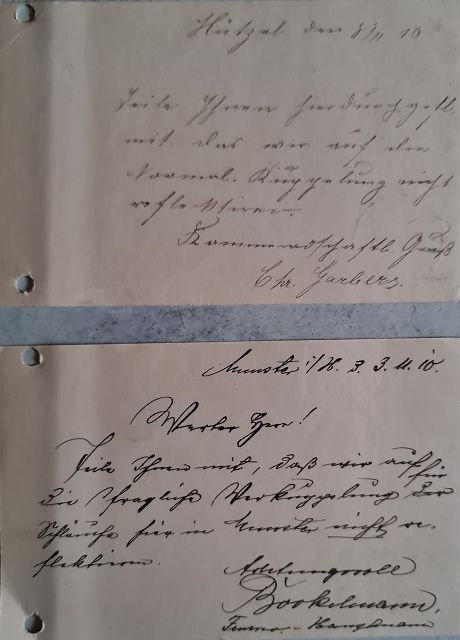 Hützel den 3/11 10
Teile Ihnen hierdurch gefl.
mit das wir auf die
Normal. Kuppelung nicht
reflektiren.
Kammeradschaftl. Gruß
Chr. Garbers.
Munster i/H. d. 3.11.10.
Werter Herr!
Teile Ihnen mit, daß wir auf
für
die fragliche Verkuppelung der
Schläuche hier in Munster nicht re-
flektieren.
Achtungsvoll
Bookelmann,
Feuerw. Hauptmann